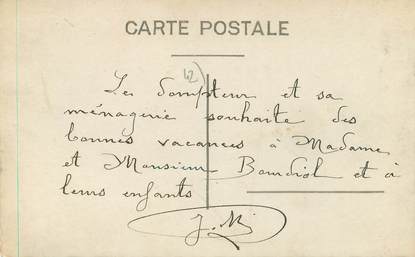 CARTE POSTALE
42)
Le dompteur et sa
ménagerie souhaite des
bonnes vacances à Madame
et Monsieur Baudiol et à
leurs enfants